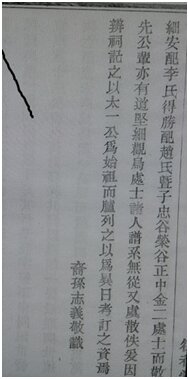 細安配李氏得勝配趙氏暨子忠谷榮谷正中金二處士而散
先公輩亦有道堅細觀鳥處士諸人譜系無從又虞散佚爰因
辨祠記之以太一公為始祖而臚列之以為異日考訂之資焉
裔孫志義敬識